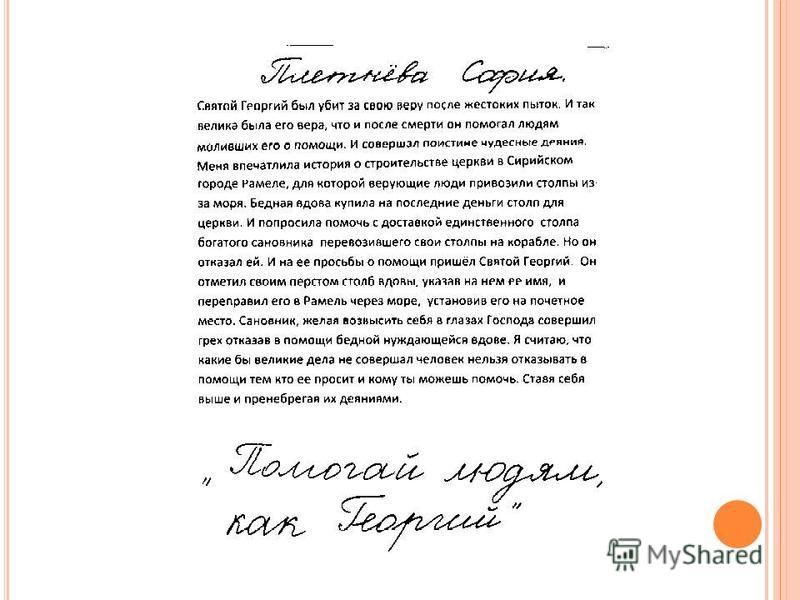 Плетнёва София.
Святой Георгий был убит за свою веру после жестоких пыток. И так
велика была его вера, что и после смерти он помогал людям
моливших его о помощи. И совершал поистине чудесные деяния.
Меня впечатлила история о строительстве церкви в Сирийском
городе Рамеле, для которой верующие люди привозили столпы из-
за моря. Бедная вдова купила на последние деньги столп для
церкви. И попросила помочь с доставкой единственного столпа
богатого сановника перевозившего свои столпы на корабле. Но он
отказал ей. И на ее просьбы о помощи пришёл Святой Георгий. Он
отметил своим перстом столб вдовы, указав на нем ее имя, и
переправил его в Рамель через море, установив его на почетное
место. Сановник, желая возвысить себя в глазах Господа совершил
грех отказав в помощи бедной нуждающейся вдове. Я считаю, что
какие бы великие дела не совершал человек нельзя отказывать в
помощи тем кто ее просит и кому ты можешь помочь. Ставя себя
выше и пренебрегая их деяниями.
„Помогай людям,
как Георгий"
MyShared